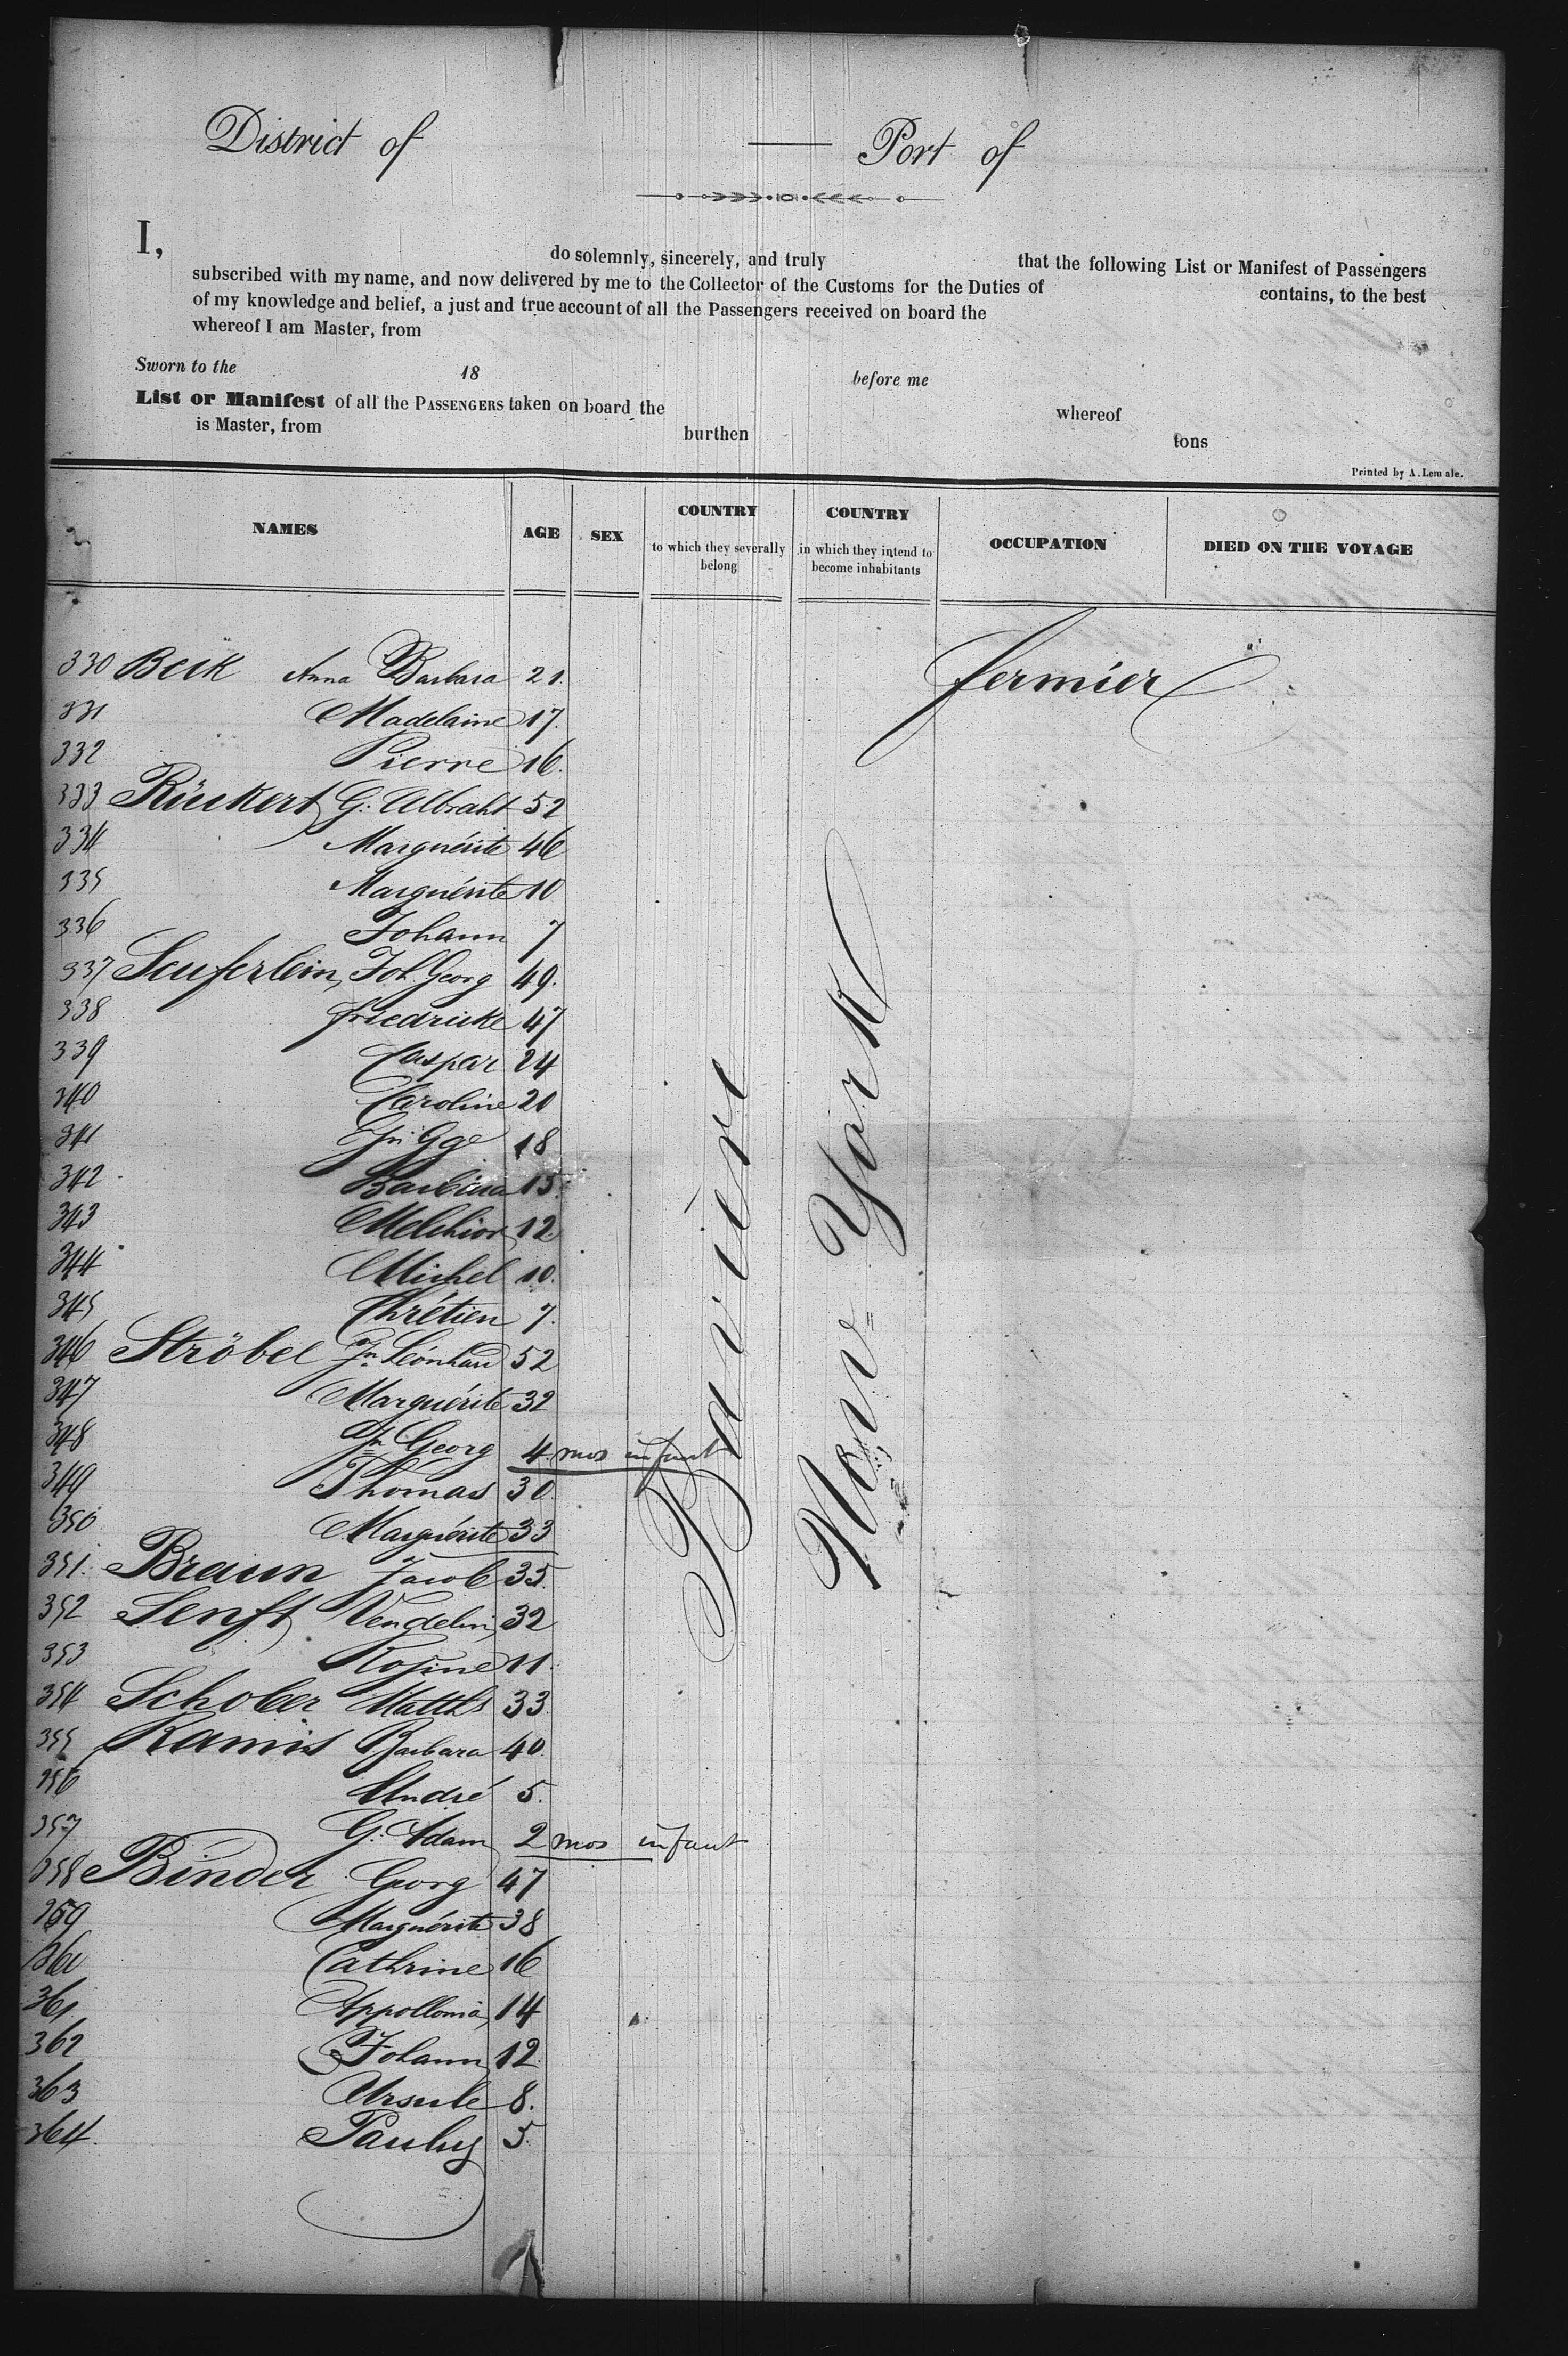 District of — Port of
I, do solemnly, sincerely, and truly that the following List or Manifest of Passengers
subscribed with my name, and now delivered by me to the Collector of the Customs for the Duties of contains, to the best
of my knowledge and belief, a just and true account of all the Passengers received on board the
whereof I am Master, from
Sworn to the 18 before me
List or Manifest of all the PASSENGERS taken on board the whereof
is Master, from burthen tons
Printed by A. Lemale.
NAMES AGE SEX COUNTRY to which they severally belong COUNTRY in which they intend to become inhabitants OCCUPATION DIED ON THE VOYAGE
330 Beck Anna Barbara 21. fermier
331 Madelaine 17.
332 Pierre 16.
333 Rückert G: Albraht 52
334 Marguérite 46
335 Marguérite 10
336 Johann 7
337 Seuferlein, Joh. Georg 49.
338 friedricke 47
339 Caspar 24
340 Caroline 20
341 Jn Gge 18
342 Barbara 15.
343 Melchior 12
344 Michel 10.
345 Chrétien 7.
346 Ströbel Jn Léonhard 52
347 Marguérite 32
348 Jn Georg 4 mos infant
349 Thomas 30
350 Marguérite 33
351. Braun Jacob 35.
352 Senft Vendelin 32
353 Rosine 11.
354 Schober Matths 33.
355 Ramis Barbara 40.
356 André 5.
357 G: Adam 2 mos infant
358 Binder Georg 47
359 Marguérite 38
360 Cathrine 16
361 Appollonia 14
362 Johann 12.
363 Ursule 8.
364. Pauly 5.
Baviere
New=York